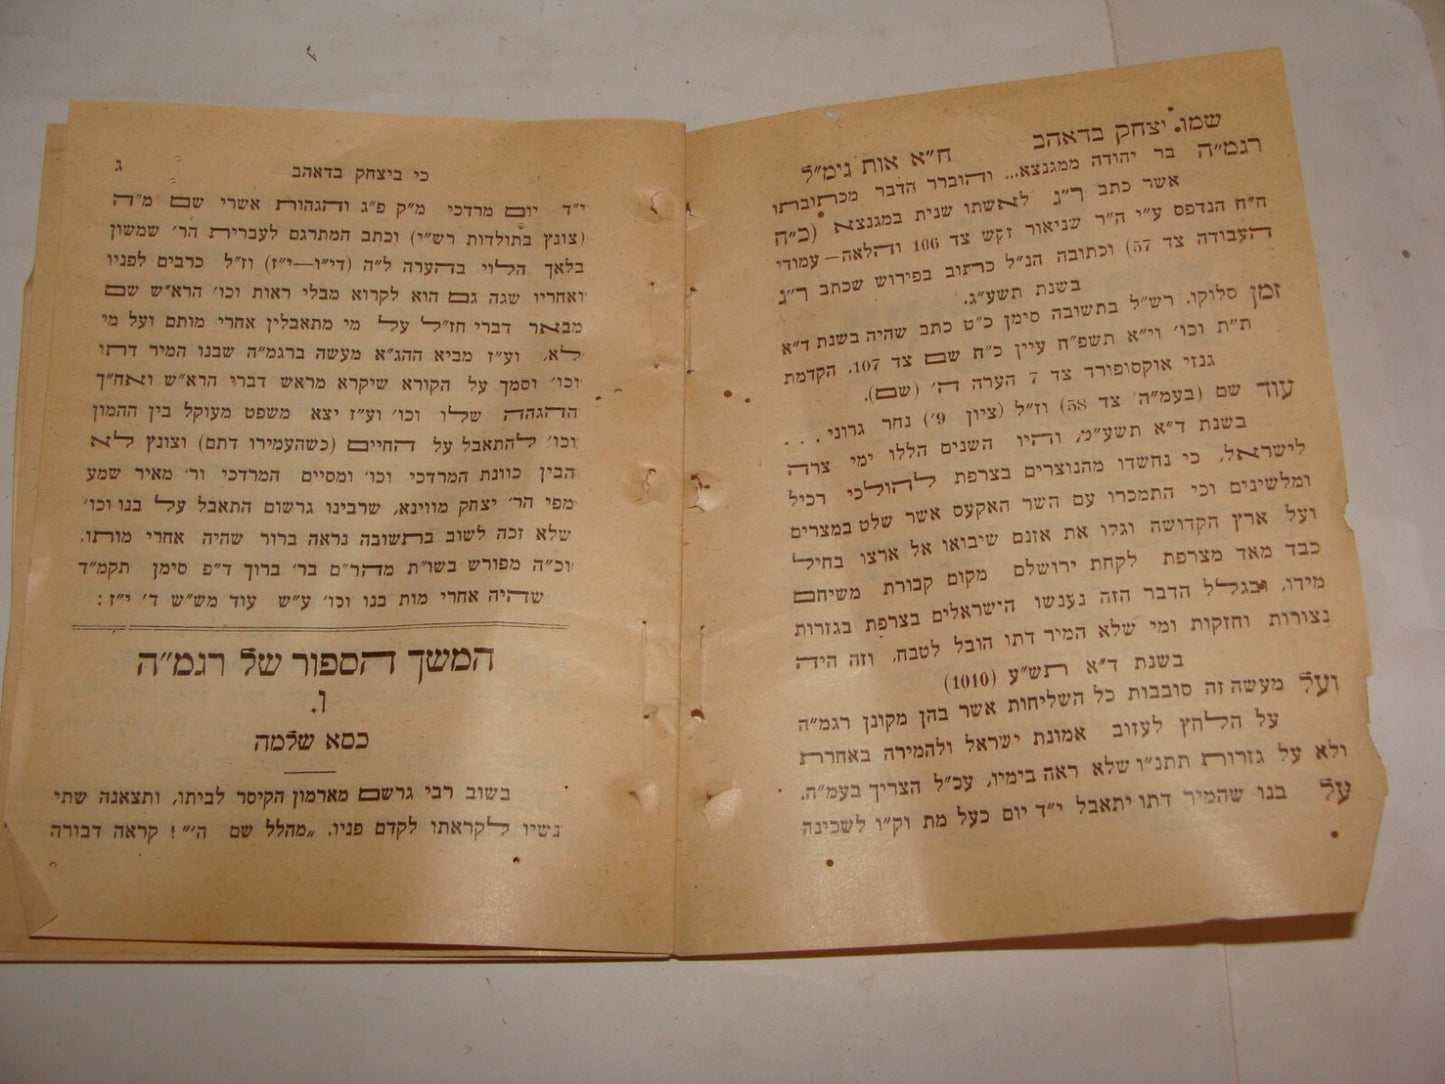 שמו. יצחק בדאהב ח״א אות גימ״ל
רגמ״ה בר יהודה ממגנצא... והוברר הדבר מכתובתו
אשר כתב ר״ג לאשתו שנית במגנצא (כ״ח
ח״ח הנדפס ע״י ה״ר שניאור זקש צד 106 והלאה — עמודי
העבודה צד 57) וכתובה הנ״ל כתוב בפירוש שכתב ר״ג
בשנת תשע״ג.
זמן סלוקו. רש״ל בתשובה סימן כ״ט כתב שהיה בשנת ד״א
ת״ת וכו׳ וי״א תשפ״ח עיין כ״ח שם צד 107. הקדמת
גנזי אוקסופורד צד 7 הערה ה׳ (שם).
עוד שם (בעמ״ה צד 58) וז״ל (ציון 9׳) נחר גרוני . . .
בשנת ד״א תשע״מ, והיו השנים הללו ימי צרה
לישראל, כי נחשדו מהנוצרים בצרפת להולכי רכיל
ומלשינים וכי התמכרו עם השר האקעס אשר שלט במצרים
ועל ארץ הקדושה וגלו את אזנם שיבואו אל ארצו בחיל
כבד מאד מצרפת לקחת ירושלם מקום קבורת משיחם
מידו, ובגלל הדבר הזה נענשו הישראלים בצרפת בגזרות
נצורות וחזקות ומי שלא המיר דתו הובל לטבח, וזה היה
בשנת ד״א תש״ע (1010)
ועל מעשה זה סובבות כל השליחות אשר בהן מקונן רגמ״ה
על הלחץ לעזוב אמונת ישראל ולהמירה באחרת
ולא על גזרות תתנ״ו שלא ראה בימיו, עכ״ל הצריך בעמ״ה.
על בנו שהמיר דתו יתאבל י״ד יום כעל מת וק״ו לשכינה
כי ביצחק בדאהב ג
י״ד יום מרדכי מ״ק פ״ג והגהות אשרי שם מ״ה
(צונץ בתולדות רש״י) וכתב המתרגם לעברית הר׳ שמשון
בלאך הלוי בהערה ל״ה (די״ו—י״ז) וז״ל כרבים לפניו
ואחריו שגה גם הוא לקרוא מבלי ראות וכו׳ הרא״ש שם
מבאר דברי חז״ל על מי מתאבלין אחרי מותם ועל מי
לא, וע״ז מביא ההג״א מעשה ברגמ״ה שבנו המיר דתו
וכו׳ וסמך על הקורא שיקרא מראש דברי הרא״ש ואח״ך
ההגהה שלו וכו׳ וע״ז יצא משפט מעוקל בין ההמון
וכו׳ להתאבל על החיים (כשהעמירו דתם) וצונץ לא
הבין כוונת המרדכי וכו׳ ומסיים המרדכי ור׳ מאיר שמע
מפי הר׳ יצחק מווינא, שרבינו גרשום התאבל על בנו וכו׳
שלא זכה לשוב בתשובה נראה ברור שהיה אחרי מותו,
וכ״ה מפורש בשו״ת מהר״ם בר׳ ברוך ד״פ סימן תקמ״ד
שהיה אחרי מות בנו וכו׳ ע״ש עוד מש״ש ד׳ י״ז :
המשך הספור של רגמ״ה
ו.
כסא שלמה
בשוב רבי גרשם מארמון הקיסר לביתו, ותצאנה שתי
נשיו לקראתו לקדם פניו. „מהלל שם ה׳״ ! קראה דבורה